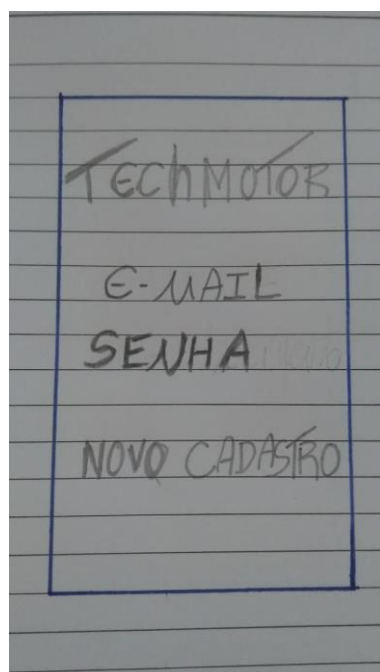 TECHMOTOR
E-MAIL
SENHA
NOVO CADASTRO